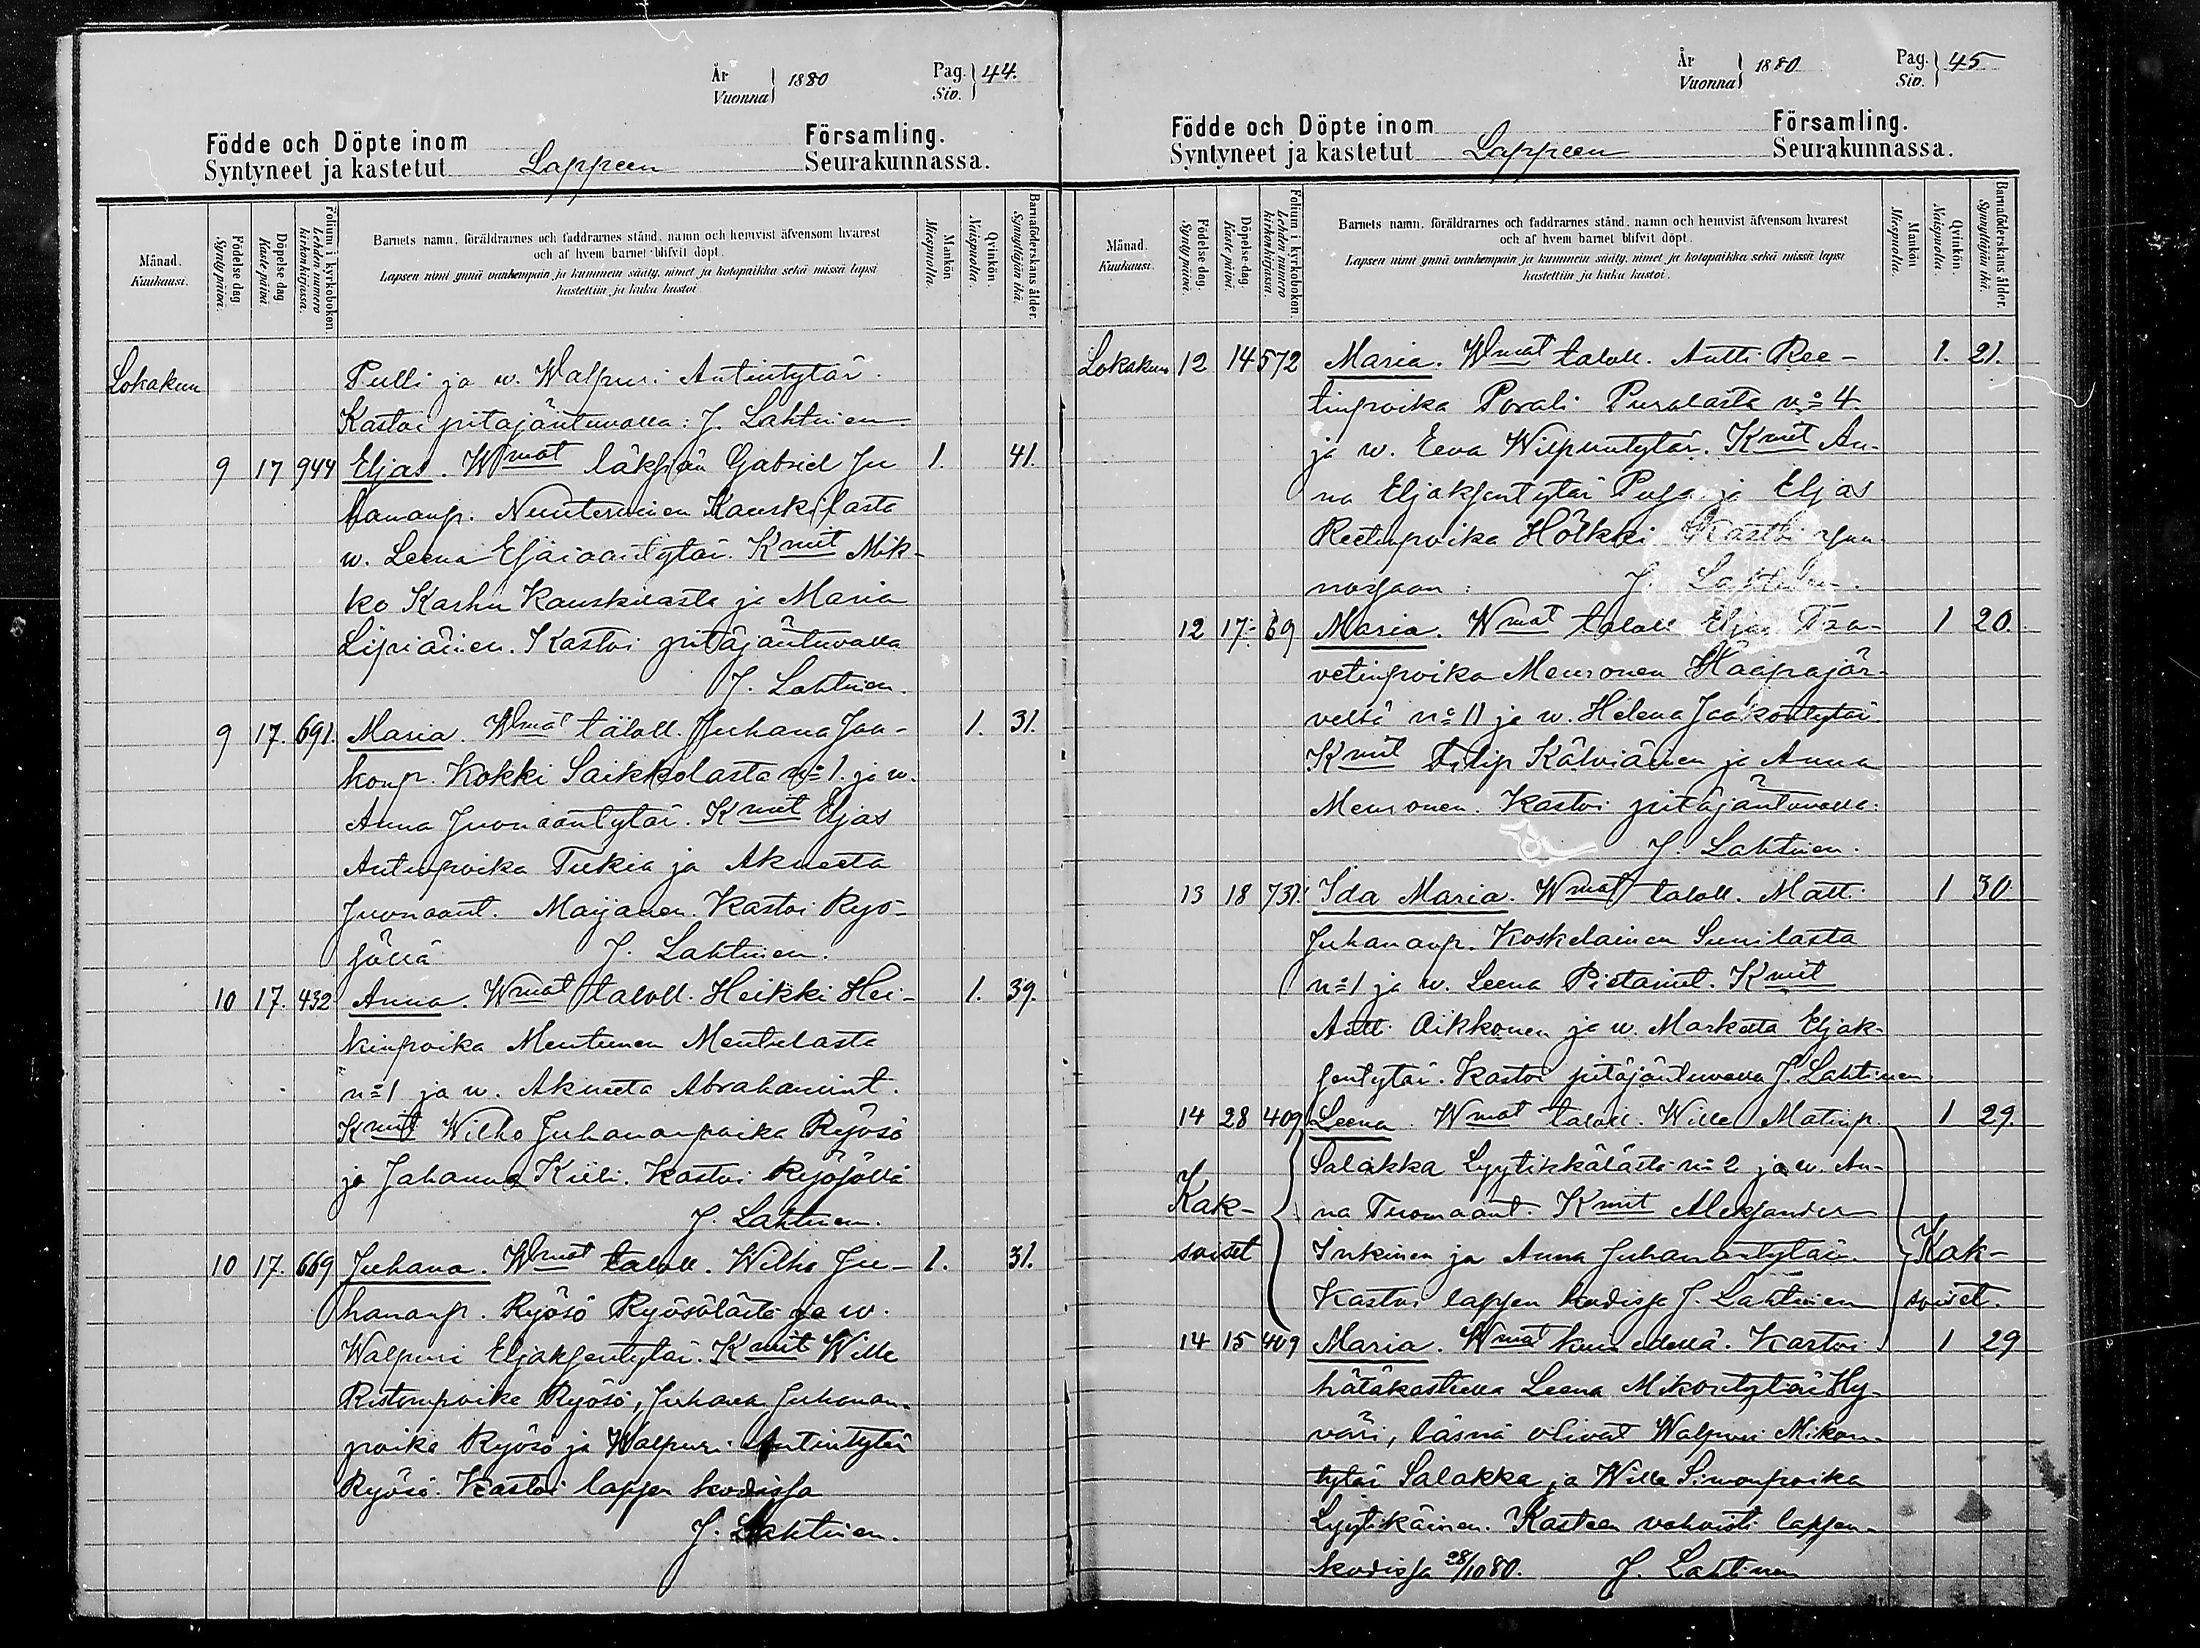 År
Vuonna } 1880
Pag.
Siv. } 44.
Födde och Döpte inom Församling.
Syntyneet ja kastetut Lappeen Seurakunnassa.
Månad.
Kuukausi.
Födelse dag
Synty päivä.
Döpelse dag
Kaste päivä.
Folium i kyrkoboken
Lehden numero kirkonkirjassa.
Barnets namn, föräldrarnes och faddrarnes stånd, namn och hemvist äfvensom hvarest
och af hvem barnet blifvit döpt.
Lapsen nimi ynnä vanhempain ja kummein sääty, nimet ja kotopaikka sekä missä lapsi
kastettiin ja kuka kastoi
Mankön
Miespuolta.
Qvinkön.
Naispuolta.
Barnaföderskans ålder.
Synnyttäjän ikä.
Lokakuu Pulli ja w. Walpuri Antintytär.
Kastoi pitäjäntuvalla: J. Lahtinen.
9 17 944 Eljas. Wmat läksiän Gabriel Ju 1. 41.
hananp. Nuuterinen Kauskilasta
w. Leena Esaiaantytär. Kmit Mik-
ko Karhu Kauskilasta ja Maria
Lipiäinen. Kastoi pitäjäntuvalla
J. Lahtinen.
9 17. 691. Maria. Wmat taloll. Juhana Jaa- 1. 31.
konp. Kokki Saikkolasta n:o 1. ja w.
Anna Juonaantytär. Kmit Eljas
Antinpoika Tukia ja Akneeta
Juonaant. Maijanen. Kastoi Ryö-
sällä J. Lahtinen.
10 17. 432 Anna. Wmat taloll. Heikki Hei- 1. 39.
kinpoika Mentunen Mentulasta
n:o 1 ja w. Akneeta Abrahamint.
Kmit Wilho Juhananpoika Ryösö
ja Johanna Kiili. Kastoi Ryösöllä
J. Lahtinen.
10 17. 669 Juhana. Wmat taloll. Wilho Ju- 1. 31.
hananp. Ryösö Ryösölästä ja w.
Walpuri Eljaksentytär. Kmit Wille
Ristonpoika Ryösö, Juhana Juhanan-
poika Ryösö ja Walpuri Antintytär
Ryösö. Kastoi lapsen kodissa
J. Lahtinen.
År
Vuonna } 1880
Pag.
Siv. } 45
Födde och Döpte inom Församling.
Syntyneet ja kastetut Lappeen Seurakunnassa.
Månad.
Kuukausi.
Födelse dag.
Synty päivä.
Döpelse dag.
Kaste päivä.
Folium i kyrkoboken.
Lehden numero kirkonkirjassa.
Barnets namn, föräldrarnes och faddrarnes stånd, namn och hemvist äfvensom hvarest
och af hvem barnet blifvit döpt.
Lapsen nimi ynnä vanhempain ja kummein sääty, nimet ja kotopaikka sekä missä lapsi
kastettiin ja kuka kastoi.
Mankön
Miespuolta.
Qvinkön.
Naispuolta.
Barnaföderskans ålder.
Synnyttäjän ikä.
Lokakuu 12 14 572 Maria. Wmat taloll. Antti Ree- 1. 21.
tinpoika Porali Puralasta n:o 4.
ja w. Eeva Wilpuntytär. Kmit An-
na Eljaksentytär ja Eljas
Reetinpoika Hölkki Kastoi
J. Lahtinen.
12 17. 69 Maria. Wmat taloll Eljas Taa- 1 20.
vetinpoika Meuronen Haapajär-
veltä n:o 11 ja w. Helena Jaakontytär
Kmit Filip Kälviäinen ja Anna
Meuronen. Kastoi pitäjäntuvalla:
J. Lahtinen.
13 18 731. Ida Maria. Wmat taloll. Matti 1 30
Juhananp. Koskelainen Sunilasta
n:o 1 ja w. Leena Pietarint. Kmit
Antti Aikkonen ja w. Marketta Eljak-
sentytär. Kastoi pitäjäntuvalla J. Lahtinen
14 28 409 Leena. Wmat taloll. Wille Matinp. 1 29.
Salakka Lyytikkälästä n:o 2 ja w. An-
Kak- na Tuomaant. Kmit Aleksander
soiset Inkinen ja Anna Juhanantytär. Kak-
Kastoi lapsen kodissa J. Lahtinen soiset.
14 15 409 Maria. Wmat kuin edellä. Kastoi 1 29
hätäkasteella Leena Mikontytär Hy-
väri, läsnä olivat Walpuri Mikon-
tytär Salakka ja Wille Simonpoika
Lyytikäinen. Kasteen vahvisti lapsen
kodissa 28/10 80. J. Lahtinen